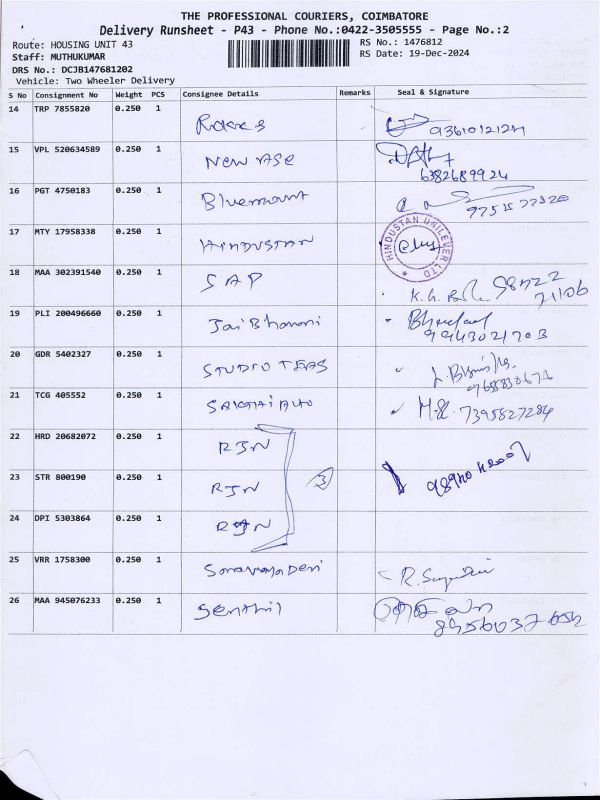 THE PROFESSIONAL COURIERS, COIMBATORE
Delivery Runsheet - P43 - Phone No.:0422-3505555 - Page No.:2
Route: HOUSING UNIT 43
RS No.: 1476812
Staff: MUTHUKUMAR
RS Date: 19-Dec-2024
DRS No.: DCJB147681202
Vehicle: Two Wheeler Delivery
S No Consignment No Weight PCS Consignee Details Remarks Seal & Signature
14 TRP 7855820 0.250 1
15 VPL 520634589 0.250 1 New Age
6382689924
16 PGT 4750183 0.250 1 Bluemount
17 MTY 17958338 0.250 1 HINDUSTAN
HINDUSTAN UNILEVER LTD
18 MAA 302391540 0.250 1 SAP
19 PLI 200496660 0.250 1 Jai Bhavani
20 GDR 5402327 0.250 1 STUDIO
21 TCG 405552 0.250 1 SAKTHI AUTO 7395827284
22 HRD 20682072 0.250 1 RJN
23 STR 800190 0.250 1 RJN 3
24 DPI 5303864 0.250 1 RJN
25 VRR 1758300 0.250 1
26 MAA 945076233 0.250 1 Senthil